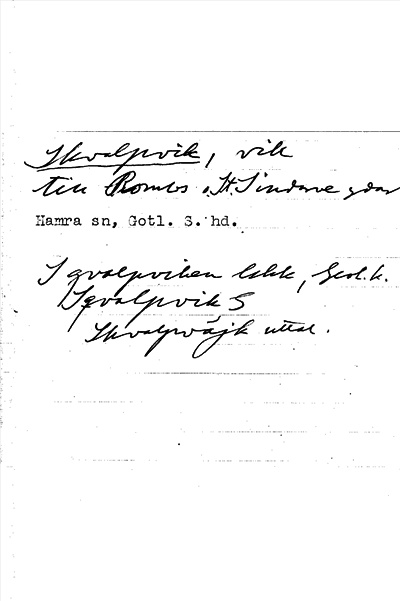 Skvalpvik, vik
till Rombs o. St. Sindarve gdar
Hamra sn, Gotl. S. hd.
Sqvalpviken Geol.k.
Sqvalpvik S
Skvalpväjk uttal.